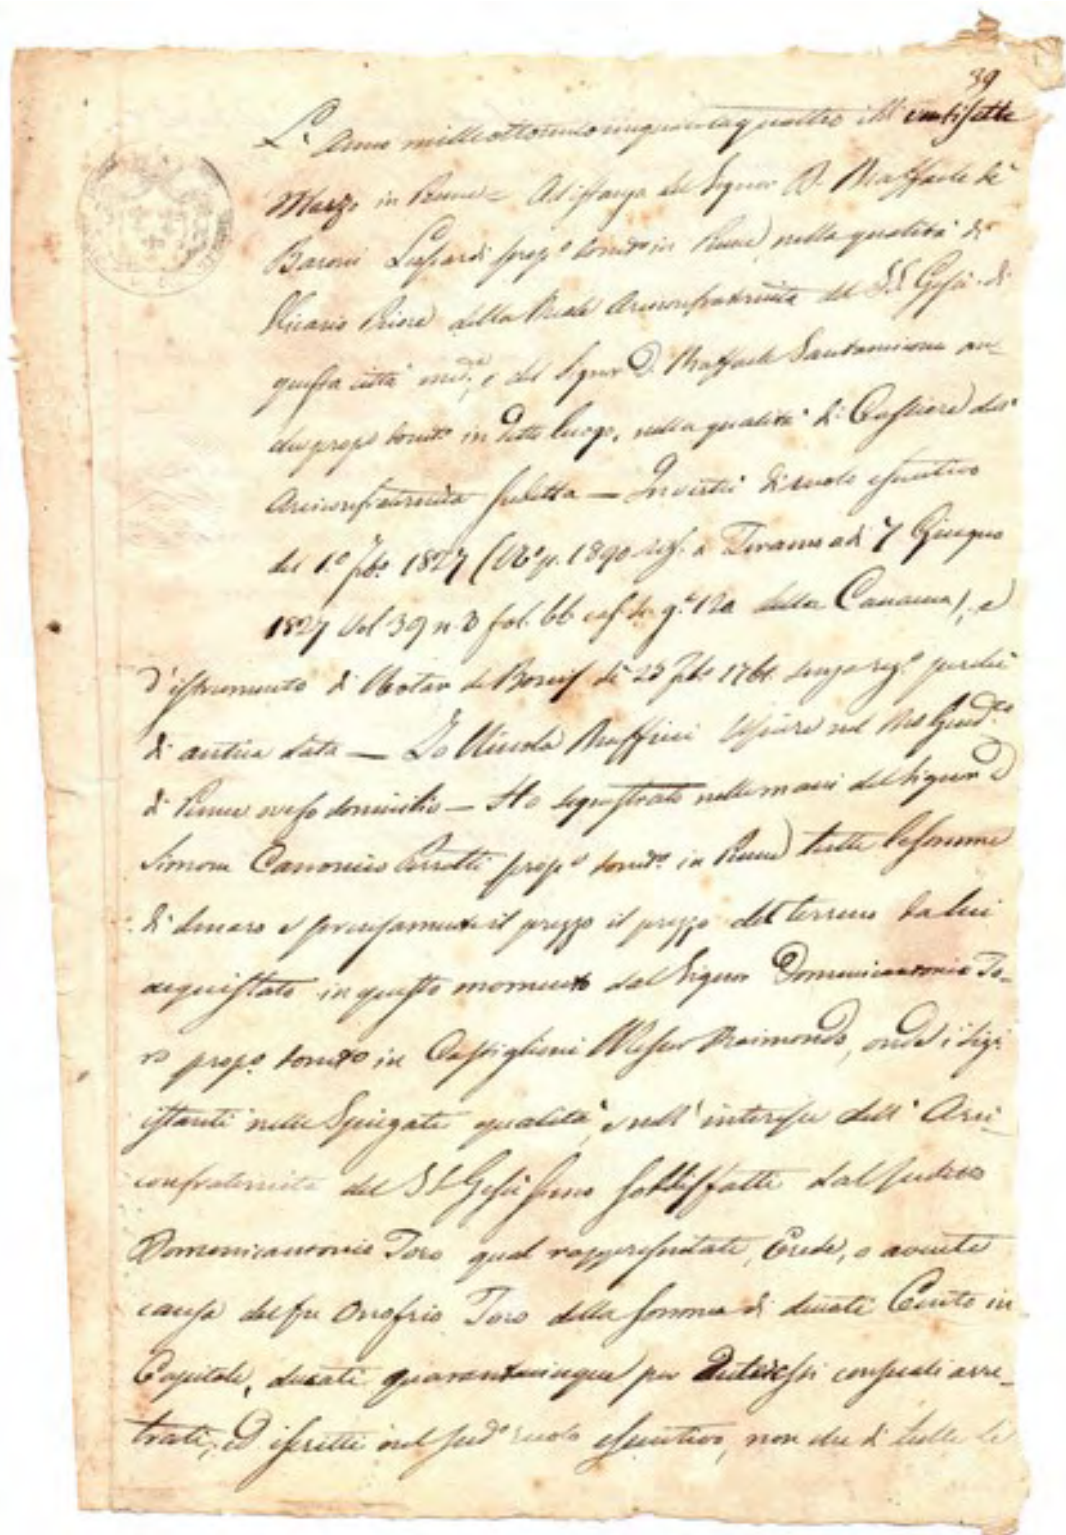 39
L'Anno milleottocentocinquantaquattro il dì ventisette
Marzo in Penne = Ad istanza del Signor D. Raffaele de
Baroni prop.o domto in Penne, nella qualità di
Vicario Priore della Reale Arciconfraternita del SS. Gesù di
questa città med.a, e del Signor D. Raffaele Santomicone an-
che prop.o domto in detto luogo, nella qualità di Cassiere dell'
Arciconfraternita sudetta — In virtù di ruolo esecutivo
del 1.o 1827 (N.o p. 1890 reg. a Teramo a dì 7 Giugno
1827 Vol. 39 n. 8 fol. 66 cas. gr. 120 della Camera), e
d'istrumento di Notar de 1761 senza reg.o perchè
di antica data — Io Nicola Usciere nel Giud.to
di Penne ivi domicilio — Ho sequestrato nelle mani del Signor D.
Simone Canonico prop.o domto in Penne tutte le somme
di denaro e precisamente il prezzo il prezzo del terreno da lui
acquistato in questo momento dal Signor Domenicantonio To-
ro prop.o domto in Castiglione Messer Raimondo, onde i Sigri
istanti nelle spiegate qualità, e nell'interesse dell'Arci-
confraternita del SS. Gesù sieno soddisfatti dal sudetto
Domenicantonio Toro qual rappresentate, Erede, o avente
causa del fu Onofrio Toro della somma di ducati Cento in
Capitale, ducati quarantacinque per interessi censuali arre-
trati, ed iscritti nel sud.o ruolo esecutivo, non che di tutte le